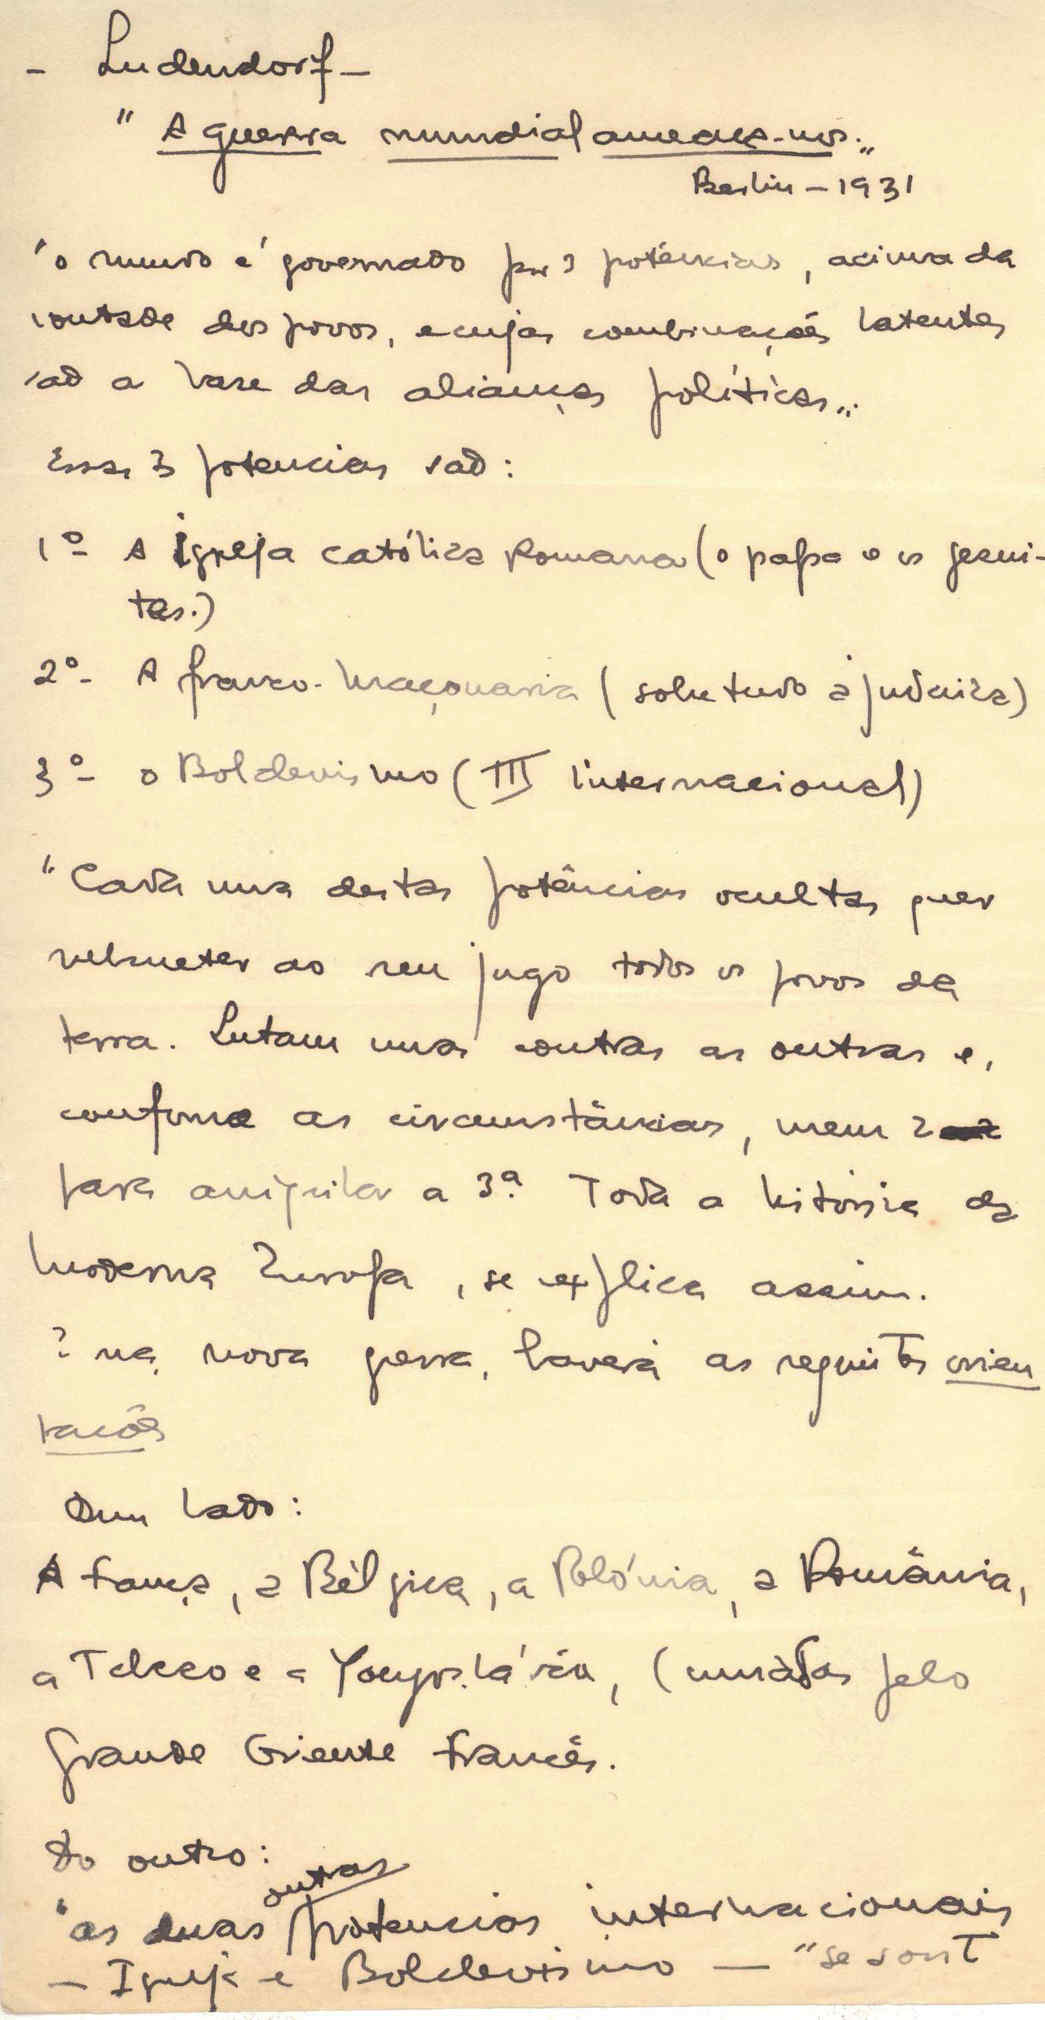 - Ludendorf -
" A guerra mundial ameaça-nos."
Berlin - 1931
"o mundo é governado por 3 potências, acima da
vontade dos povos, e cujas combinações latentes
são a base das alianças políticas".
Essas 3 potencias são:
1º - A Igreja católica Romana (o papa e os jesui-
tas.)
2º - A franco-maçonaria (sobretudo a judaica)
3º - o Bolchevismo (III internacional)
"Cada uma destas potências ocultas quer
submeter ao seu jugo todos os povos da
terra. Lutam umas contras as outras e,
conforme as circumstâncias, unem 2
para aniquilar a 3ª. Toda a história da
moderna Europa, se explica assim.
E na nova guerra, haverá as seguintes orien
tações
Dum lado:
A França, a Bélgica, a Polónia, a România,
a Tcheco e a Yougoslávia, (unidas pelo
Grande Oriente francês.
Do outro:
"as duas outras potencias internacionais
- Igreja e Bolchevismo - "se sont